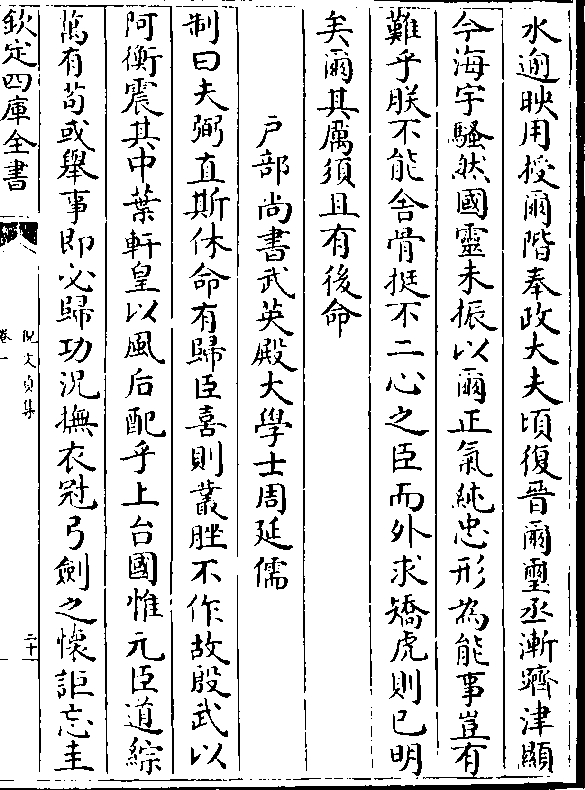 水逈映用授爾階奉政大夫頃復晉爾璽丞漸躋津顯
今海宇騷然國靈未振以爾正氣純忠形為能事豈有
難乎朕不能舍骨挺不二心之臣而外求矯虎則已明
矣爾其厲須且有後命
戶部尚書武英殿大學士周延儒
制曰夫弼直斯休命有歸臣喜則叢脞不作故殷武以
阿衡震其中葉軒皇以風后配乎上台國惟元臣道綜
萬有苟或舉事即必歸功況撫衣冠弓劍之懷詎忘圭
欽定四庫全書
倪文貞集
卷一
二十